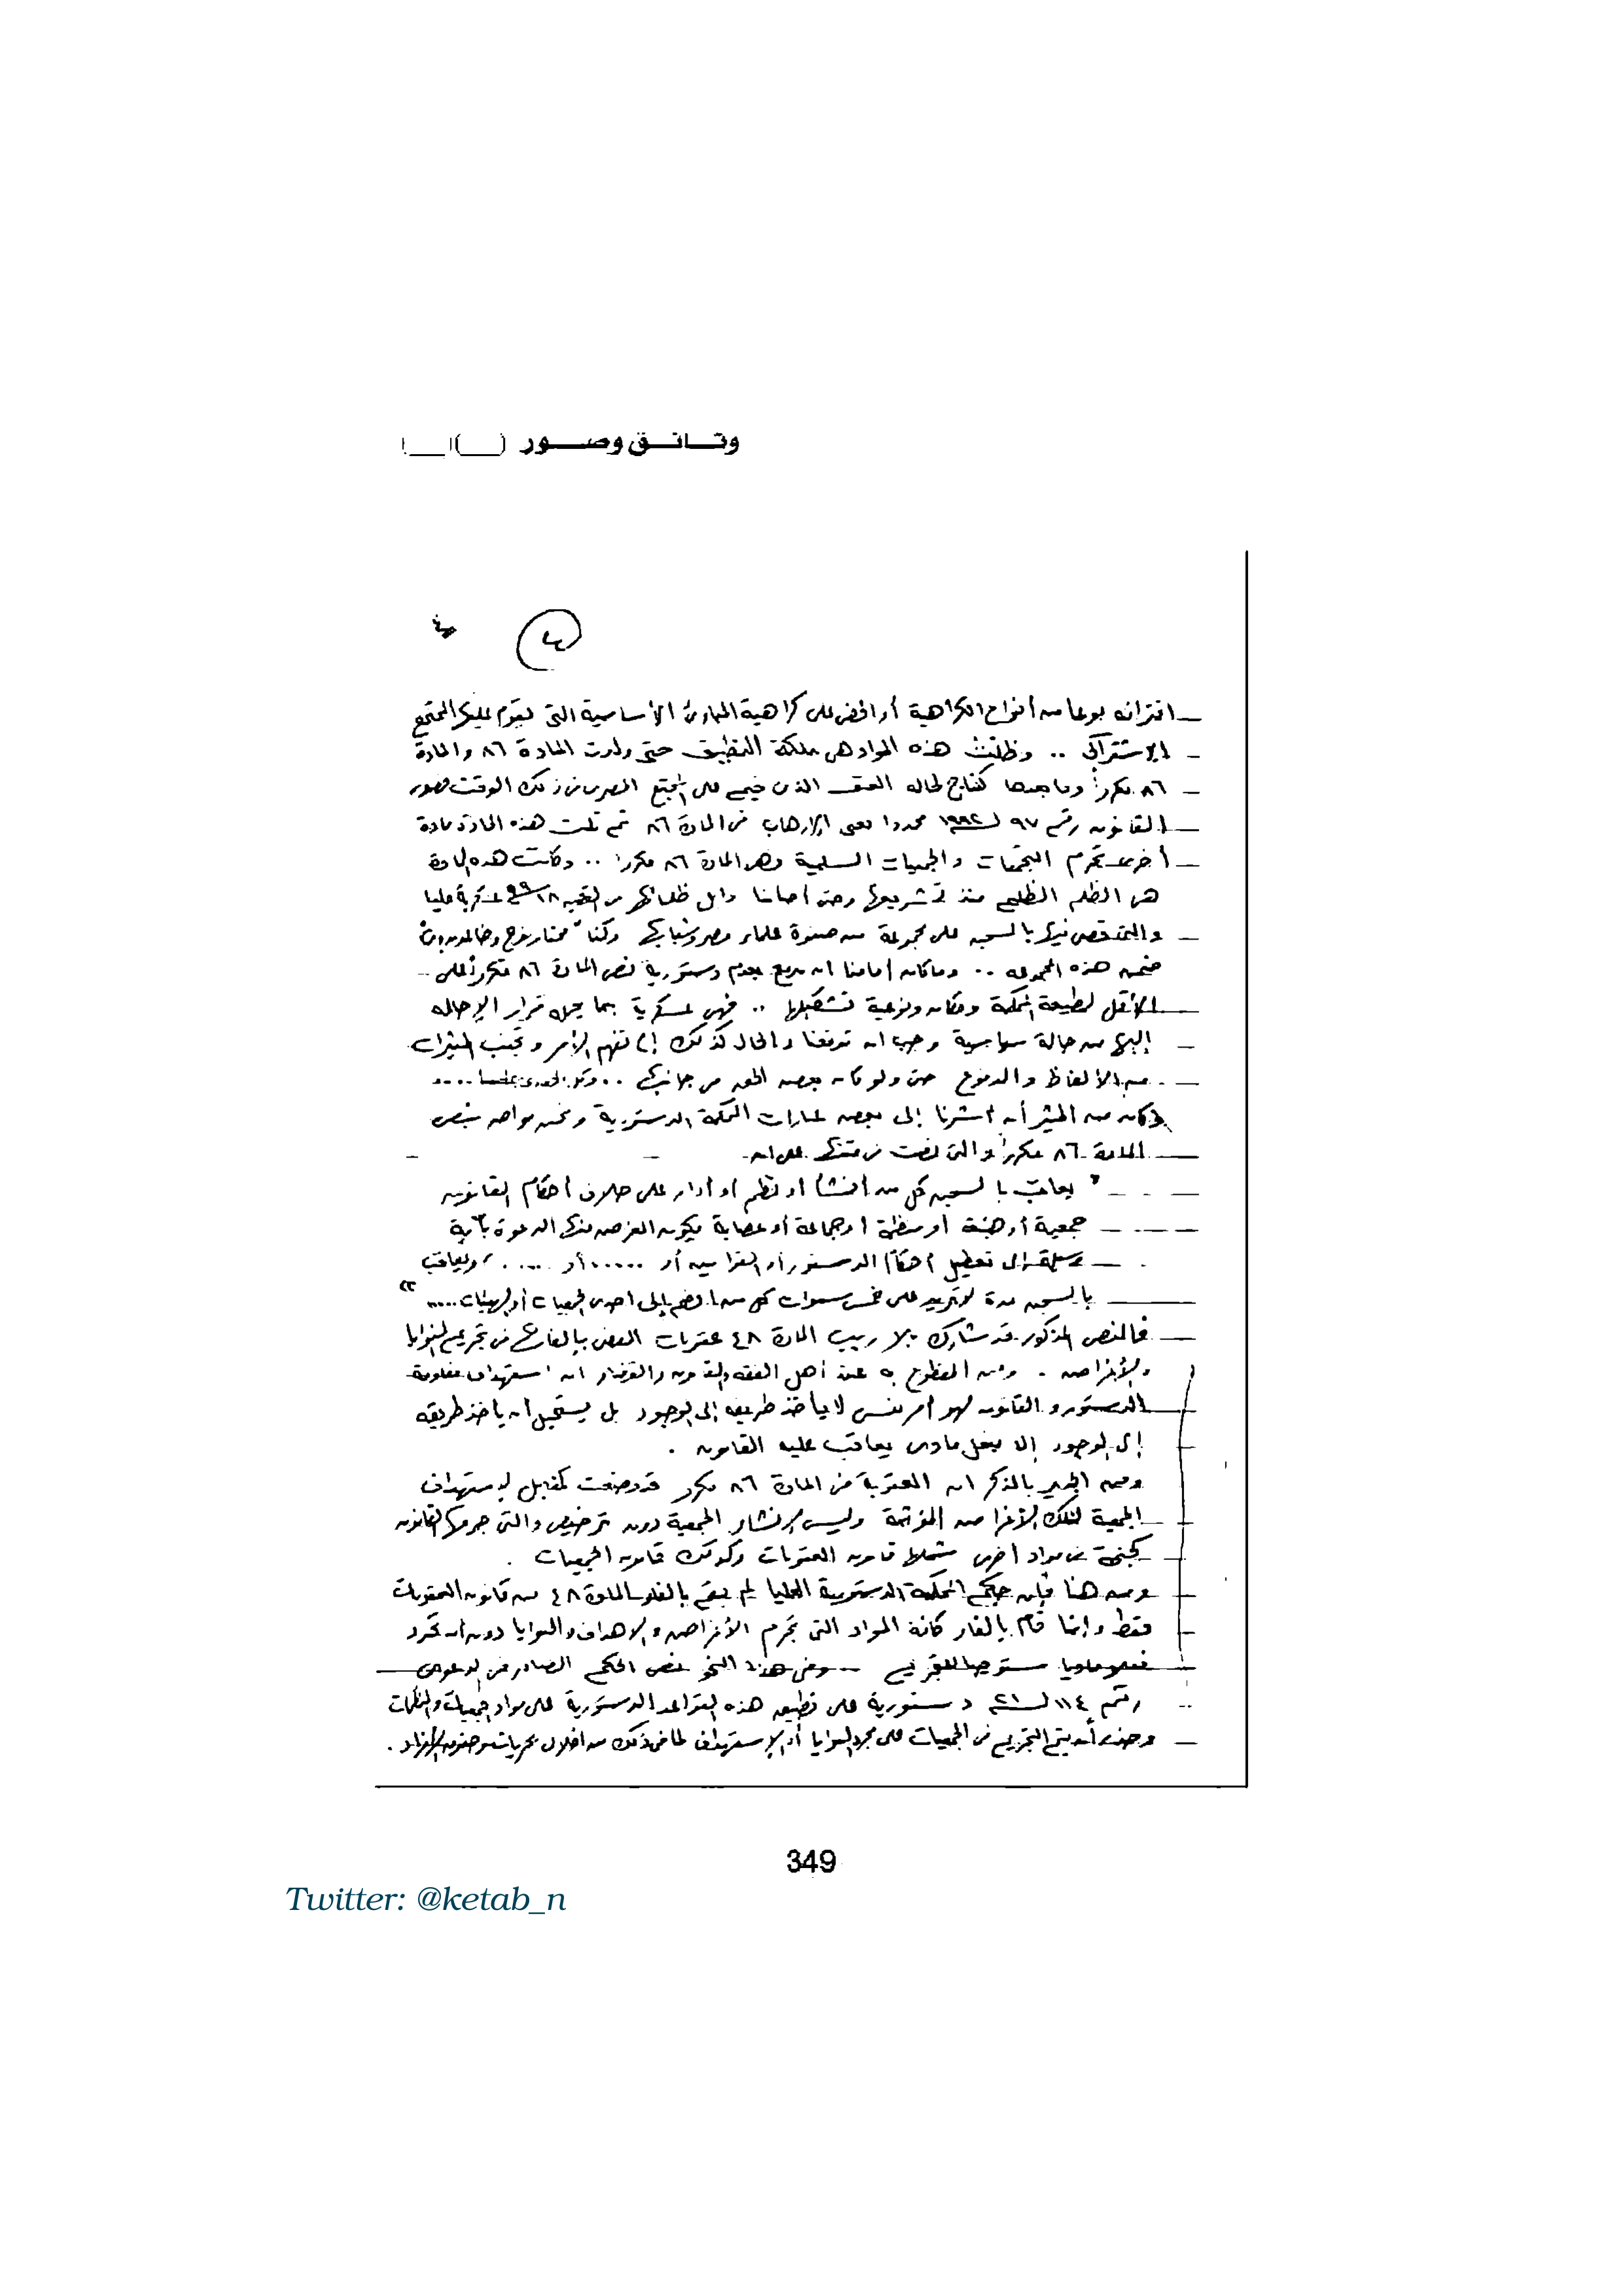 وثائق وصور
اقترانه بنوعا من أنواع الكراهية أو الحض على كراهية المبادئ الأساسية التى يقوم عليها المجتمع
الاشتراكى .. وظلت هذه المواد هى ملكة التطبيق حتى ولدت المادة ٨٦ والمادة
٨٦ مكرراً وما بعدها كنتاج لحالة العنف الذى خيم على المجتمع المصرى فى ذلك الوقت فصدر
القانون رقم ٩٧ لـ ١٩٩٢ محددا معنى الإرهاب فى المادة ٨٦ ثم تلت هذه المادة مادة
أخرى تجرم التجمعات والجمعيات السلمية وهى المادة ٨٦ مكرراً .. وكانت هذه المادة
هى الظلم الظليم منذ تشريعها وحتى أصابنا وابل ظلماتها فى القضية ١٨ / ٩٩ عسكرية عليا
والتى قضى فيها بالسجن على مجموعة من صفوة علماء مصر وشبابها وكنا " مختار نوح وخالد بدوى "
ضمن هذه المجموعة .. وما كان أمامنا ان ندفع بعدم دستورية نص المادة ٨٦ مكرراً على
الأقل لطبيعة المحكمة ومكان ونوعية تشكيلها .. فهى عسكرية بما يحمله قرار الإحالة
إليها من حالة سياسية وجب ان توقفنا والحال كذلك إلى تفهم الأمر وتجنب المثيرات
من الألفاظ والدفوع حتى ولو كان بعض الحق فى جانبك ..
وكان من المثير أن أشرنا إلى بعض عبارات المحكمة الدستورية ونحن نواجه بنص
المادة ٨٦ مكرراً والتى نصت فى متنها على ان
" يعاقب بالسجن كل من أنشأ أو نظم أو أدار على خلاف أحكام القانون
جمعية أو هيئة أو منظمة أو جماعة أو عصابة يكون الغرض منها الدعوة بأية
وسيلة إلى تعطيل أحكام الدستور أو القوانين أو ...... أو ..... ، ويعاقب
بالسجن مدة لا تزيد على خمس سنوات كل من انضم إلى احدى الجمعيات أو الهيئات ..... "
فالنص المذكور قد شارك بلا ريب المادة ٤٨ عقوبات المقضى بإلغائها فى تجريم النوايا
والأغراض . ومن المقطوع به عند أهل الفقه والقانون والقضاء ان استهداف مقاومة
الدستور والقانون لهو أمر نفسى لا يأخذ طريقه إلى الوجود بل يستحيل أن يأخذ طريقه
إلى الوجود إلا بفعل مادى يعاقب عليه القانون .
ومن الجدير بالذكر ان العقوبة فى المادة ٨٦ مكرر قد وضعت كمقابل لاستهداف
الجمعية لتلك الأغراض المؤثمة وليس لإنشاء الجمعية دون ترخيص والتى جرمها القانون
كجنحة فى مواد أخرى شملها قانون العقوبات وكذلك قانون الجمعيات .
ومن هنا فإن حكم المحكمة الدستورية العليا لم يقم بإلغاء المادة ٤٨ من قانون العقوبات
فقط وإنما قام بإلغاء كافة المواد التى تجرم الأغراض والاهداف والنوايا دون أن تحدد
فعلا ماديا مستوجبا للتجريم .. وعلى هذا النحو نص الحكم الصادر فى الدعوى
رقم ١١٤ لـ ٢١ دستورية على تطبيق هذه القواعد الدستورية على مواد الجمعيات والمنظمات
وحذر أن يتم التجريم فى الجمعيات على مجرد النوايا أو الاستهداف لما فى ذلك من اخلال بحريات وحقوق الأفراد .
349
Twitter: @ketab_n